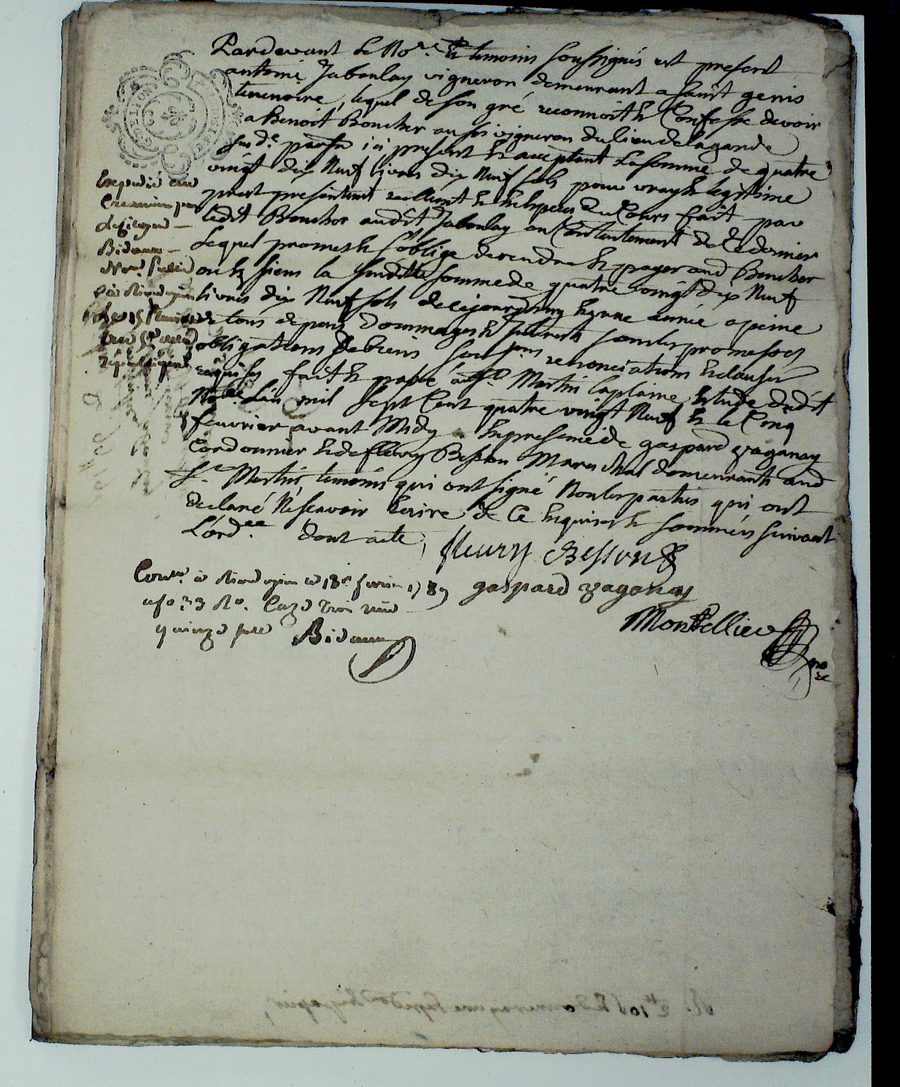 Pardevant le No.re & temoins soussignés est present
antoine Jaboulay vigneron demeurant a saint genis
terrenoire, lequel de son gré reconnoit & Confesse devoir
a Benoit Boucher aussi vigneron du lieu de la garde
sus.de parsse ici present & acceptant la somme de quatre
vingt dix Neuf livres dix Neuf sols pour vray & legitime
prest presentement & en Especes du Cours fait par
ledit Boucher audit Jaboulay au Contentement de Ce dernier
Lequel promest & s'oblige de rendre & payer aud Boucher
ou és siens la susditte somme de quatre vingt dix Neuf
livres dix Neuf sols de cejourdhuy En une année a peine
de tous depens dommages & interest sous les promesses
obligations de biens sou pns renonciations & clauses
requises fait & passé a St Martin laplaine Etude dudit
No.re L'an mil sept Cent quatre vingt Neuf & le Cinq
fevrier avant Midy En presence de gaspard vaganay
Cordonnier & de fleury Besson Marechal demeurants aud
St. Martin temoins qui ont signé Non les parties qui ont
declaré Ne scavoir Ecrire de Ce Enquis & sommés suivant
L'ord.ce dont acte,
fleury Besson
gaspard vaganay
Montellier
No.re
Con.lé a Rivedegier le 18 fevrier 1789
fo. 33 Ro. Caze trois reçu
quinze sols
Bideau
Expedié une
du citoyen
Bideau